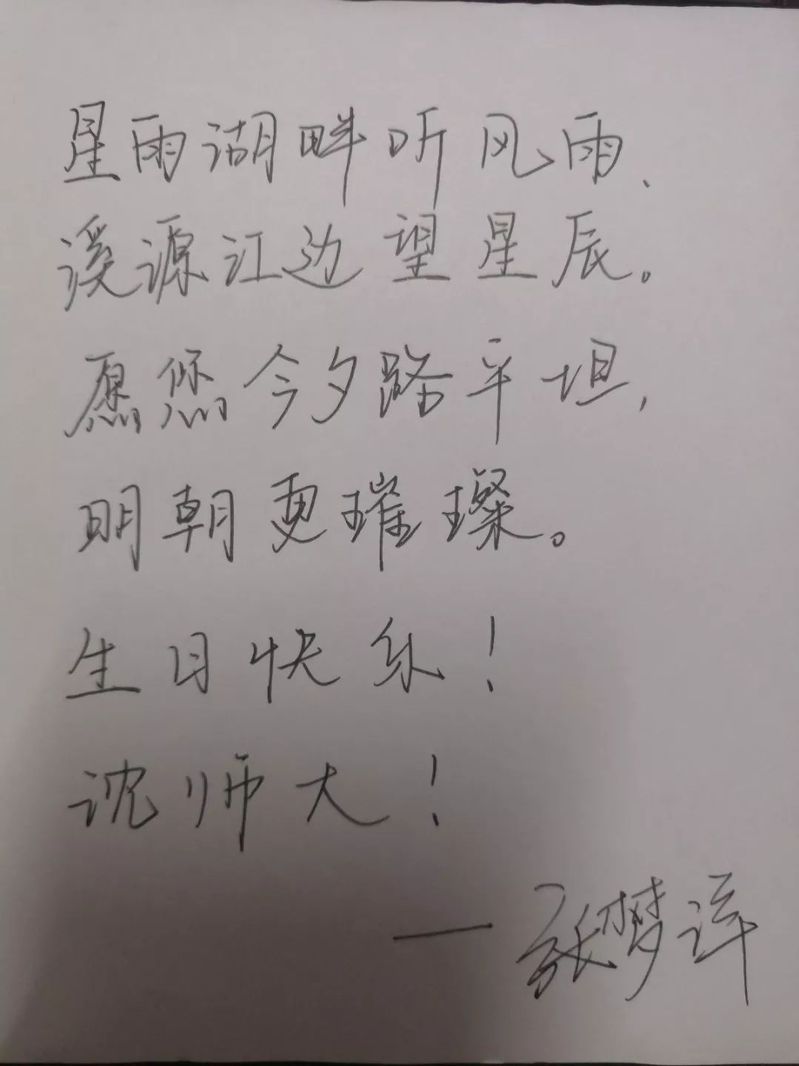 星雨湖畔听风雨、
溪源江边望星辰。
愿您今夕路平坦,
明朝更璀璨。
生日快乐!
沈师大!
——张梦洋